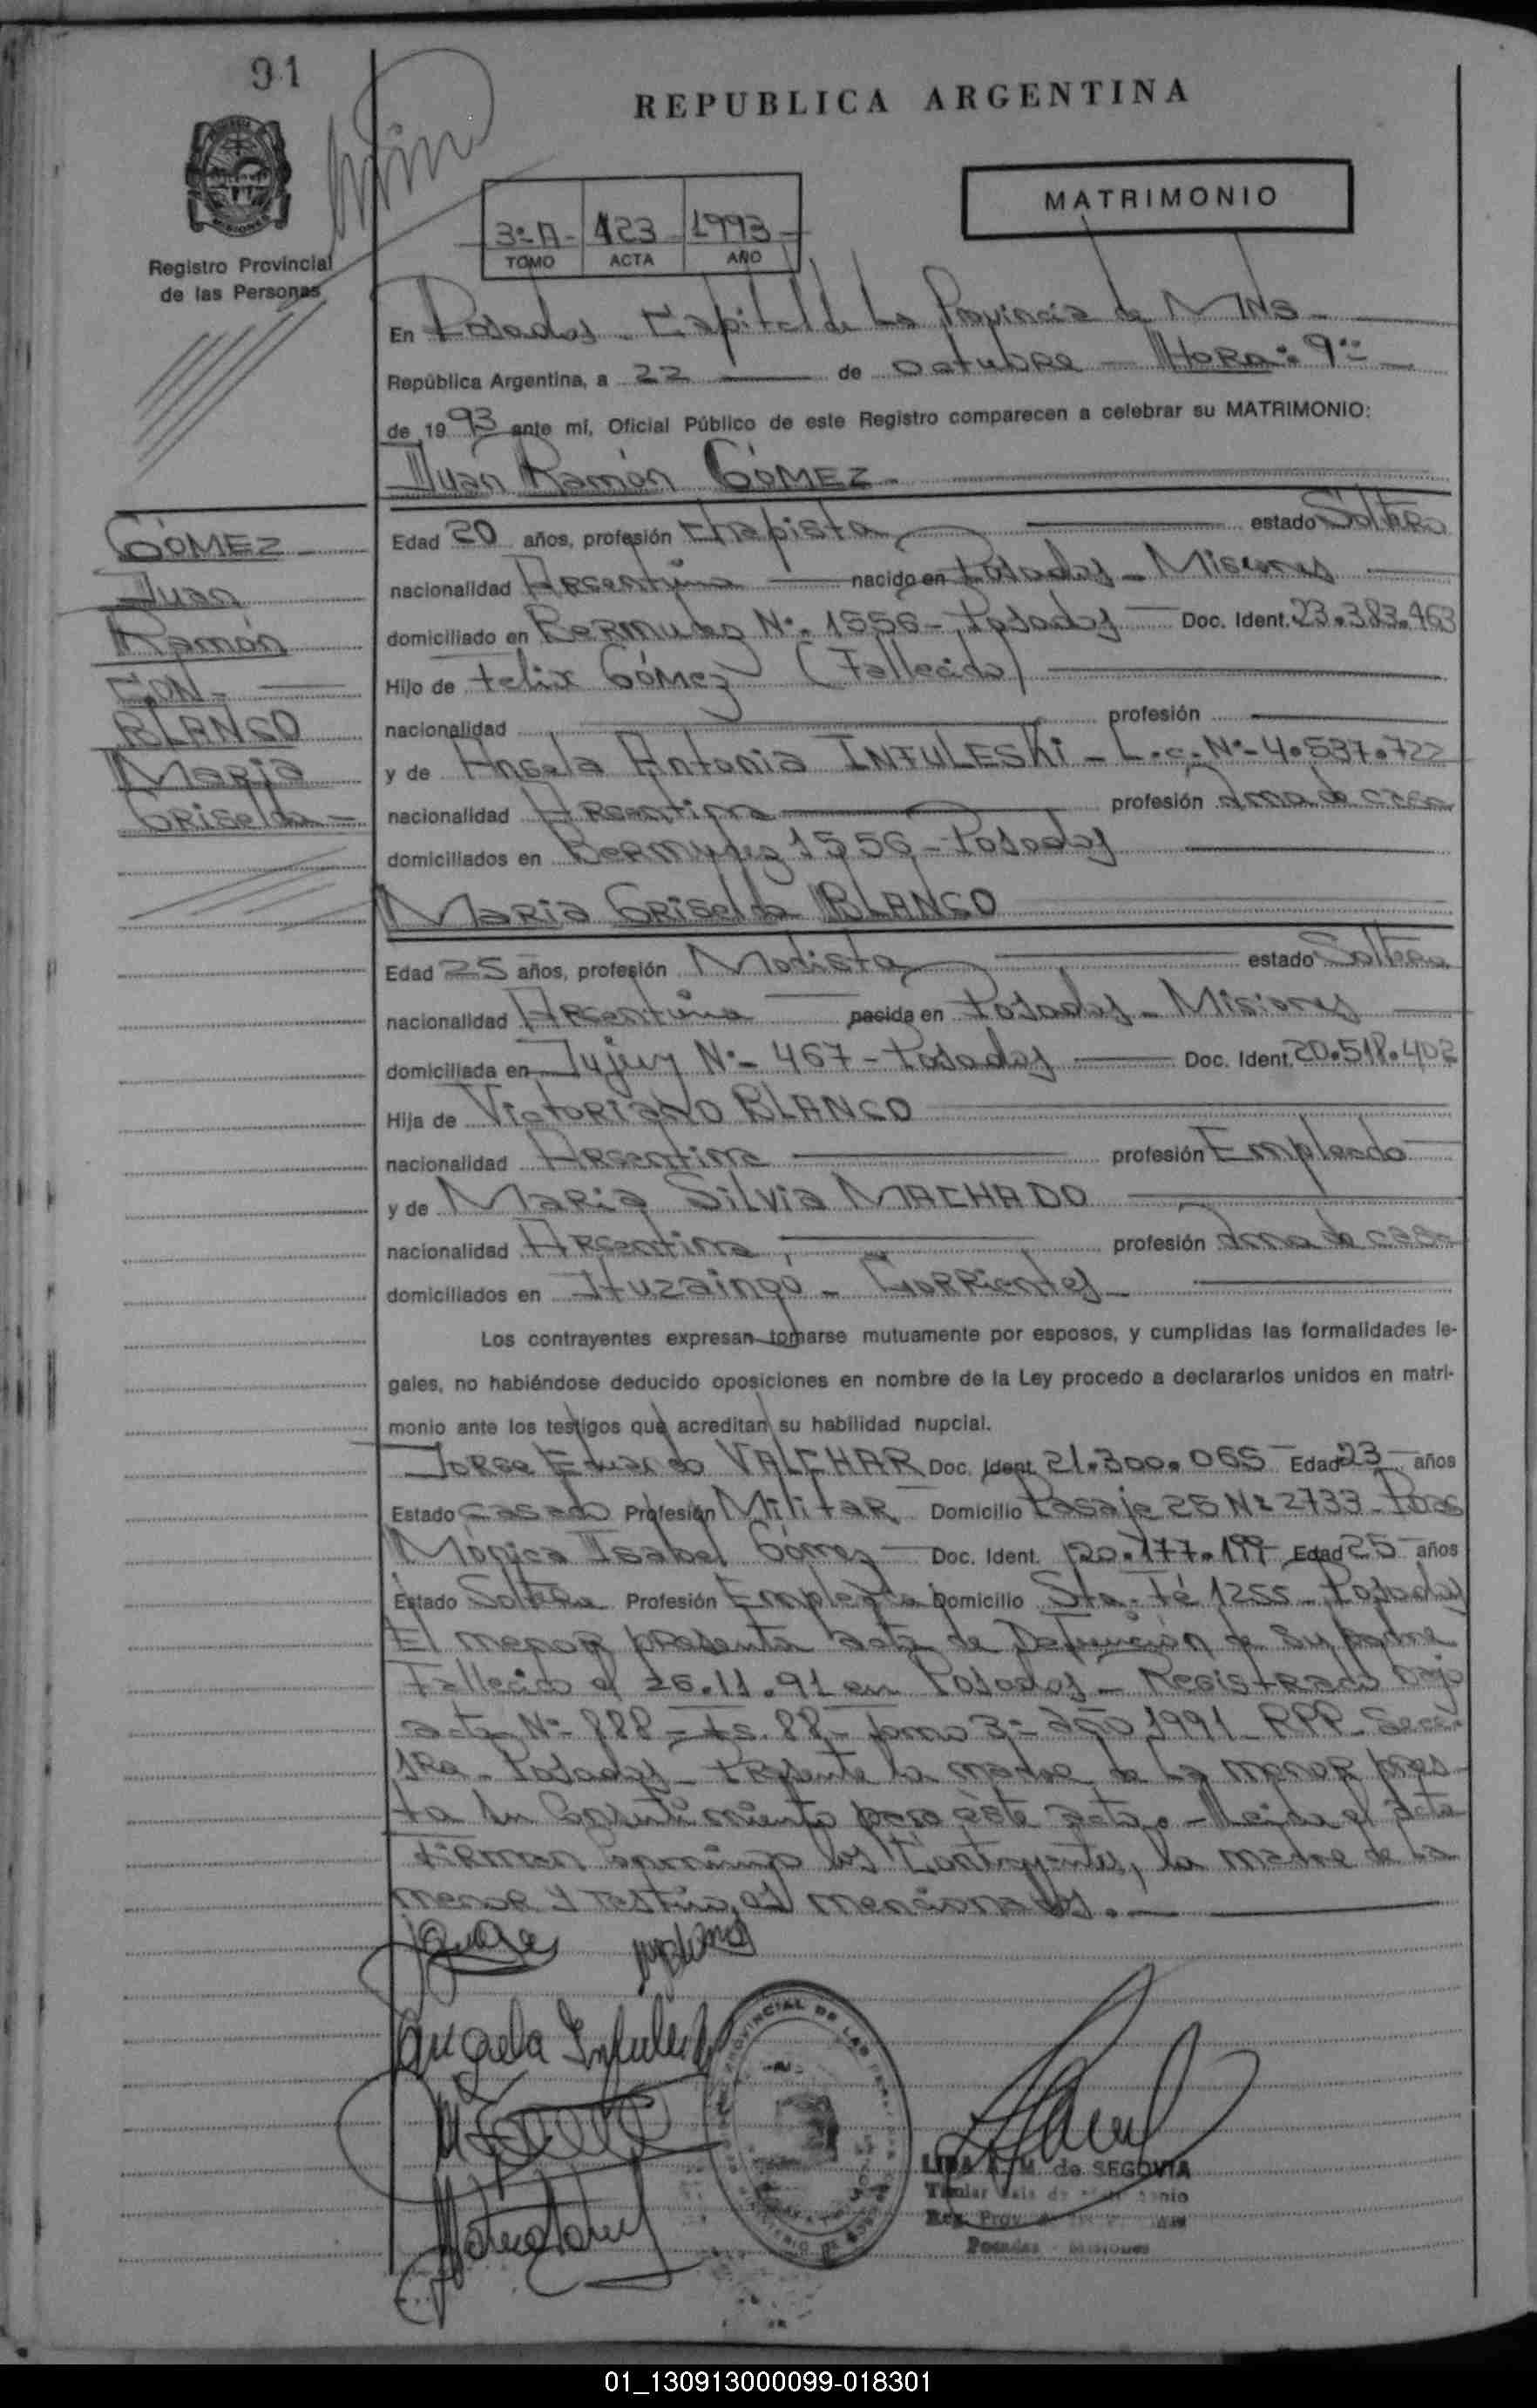 91
REPUBLICA ARGENTINA
MATRIMONIO
Registro Provincial
de las Personas
3º-A- 423 1993
TOMO ACTA AÑO
En Posadas - Capital de La Provincia de Mnes -
República Argentina, a 22 de octubre - Hora: 9
de 1993 ante mí, Oficial Público de este Registro comparecen a celebrar su MATRIMONIO:
Juan Ramón GÓMEZ -
GÓMEZ -
Juan
Ramón
CON -
BLANCO
Maria
Griselda -
Edad 20 años, profesión Chapista estado Soltero
nacionalidad Argentina nacido en Posadas - Misiones
domiciliado en Bermudez Nº- 1556 - Posadas Doc. Ident. 23.383.463
Hijo de Felix Gómez (Fallecido)
nacionalidad profesión
y de Angela Antonia INFULESKI - L.C. Nº- 4.537.722
nacionalidad Argentina profesión Ama de casa
domiciliados en Bermudez 1556 - Posadas
Maria Griselda BLANCO
Edad 25 años, profesión Modista estado Soltera
nacionalidad Argentina nacida en Posadas - Misiones
domiciliada en Jujuy Nº- 467 - Posadas Doc. Ident. 20.518.402
Hija de Victoriano BLANCO
nacionalidad Argentina profesión Empleado
y de Maria Silvia MACHADO
nacionalidad Argentina profesión Ama de casa
domiciliados en Ituzaingó - Corrientes -
Los contrayentes expresan tomarse mutuamente por esposos, y cumplidas las formalidades le-
gales, no habiéndose deducido oposiciones en nombre de la Ley procedo a declararlos unidos en matri-
monio ante los testigos que acreditan su habilidad nupcial.
Jorge Eduardo VALCHAR Doc. Ident. 21.300.065 Edad 23 años
Estado Casado Profesión Militar Domicilio Pasaje 25 Nº 2733 - Pdas
Mónica Isabel Gómez Doc. Ident. 20.177.199 Edad 25 años
Estado Soltera Profesión Empleada Domicilio Sta. Fé 1255 - Posadas
El menor presenta acta de Defunción de su padre
Fallecido el 26.11.91 en Posadas - Registrado bajo
acta Nº- 888 - Fs. 88 - Tomo 3º año 1991 - RPP - Secc.
1Ra - Posadas - Presente la madre de la menor pres-
ta su Consentimiento para éste acto. - Leida el Acta
Firman Conmigo los Contrayentes, la madre de la
menor y testigos mencionados. -
Angela Infuleski
PROVINCIAL DE LAS PERSONAS
de SEGOVIA
Titular
Reg. Prov.
Posadas - Misiones
01_130913000099-018301